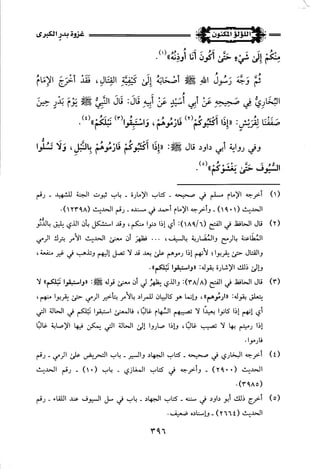 اللؤلؤ المكنون
غزوة بدر الكبرى
مِنْكُمْ إِلَى شَيْءٍ حَتَّى أَكُونَ أَنَا أُوذِنُهُ»(١).
ثُمَّ وَجَّهَ رَسُولُ اللهِ ﷺ أَصْحَابَهُ إِلَى كَيْفِيَّةِ القِتَالِ، فَقَدْ أَخْرَجَ الإِمَامُ
البُخَارِيُّ فِي صَحِيحِهِ عَنْ أَبِي أُسَيْدٍ عَنْ أَبِيهِ قَالَ: قَالَ النَّبِيُّ ﷺ يَوْمَ بَدْرٍ حِينَ
صَفَفْنَا لِقُرَيْشٍ: «إِذَا أَكْثَبُوكُمْ(٢) فَارْمُوهُمْ، وَاسْتَبْقُوا(٣) نَبْلَكُمْ»(٤).
وَفِي رِوَايَةِ أَبِي دَاودَ قَالَ ﷺ: «إِذَا أَكْثَبُوكُمْ فَارْمُوهُمْ بِالنَّبْلِ، وَلَا تَسُلُّوا
السُّيُوفَ حَتَّى يَغْشَوْكُمْ»(٥).
(١) أخرجه الإمام مسلم في صحيحه - كتاب الإمارة - باب ثبوت الجنة للشهيد - رقم
الحديث (١٩٠١) - وأخرجه الإمام أحمد في مسنده - رقم الحديث (١٢٣٩٨).
(٢) قال الحافظ في الفتح (١٨٩/٦): أي إذا دنوا منكم، وقد استشكل بأن الذي يليق بالدُّنُوِّ
المطاعنة بالرمح والمضاربة بالسيف، ... فظهر أن معنى الحديث الأمر بترك الرمي
والقتال حتى يقربوا لأنهم إذا رموهم على بعد قد لا تصل إليهم وتذهب في غير منفعة،
وإلى ذلك الإشارة بقوله: «واستبقوا نبلكم».
(٣) قال الحافظ في الفتح (٣٨/٨): والذي يظهر لي أن معنى قوله ﷺ: «واستبقوا نبلكم» لا
يتعلق بقوله: «ارموهم»، وإنما هو كالبيان للمراد بالأمر بتأخير الرمي حتى يقربوا منهم،
أي إنهم إذا كانوا بعيدًا لا تصيبهم السهام غالبًا، فالمعنى استبقوا نبلكم في الحالة التي
إذا رميتم بها لا تصيب غالبًا، وإذا صاروا إلى الحالة التي يمكن فيها الإصابة غالبًا
فارموا.
(٤) أخرجه البخاري في صحيحه - كتاب الجهاد والسير - باب التحريض على الرمي - رقم
الحديث (٢٩٠٠) - وأخرجه في كتاب المغازي - باب (١٠) - رقم الحديث
(٣٩٨٥).
(٥) أخرج ذلك أبو داود في سننه - كتاب الجهاد - باب في سل السيوف عند اللقاء - رقم
الحديث (٢٦٦٤) - وإسناده ضعيف.
٣٩٦